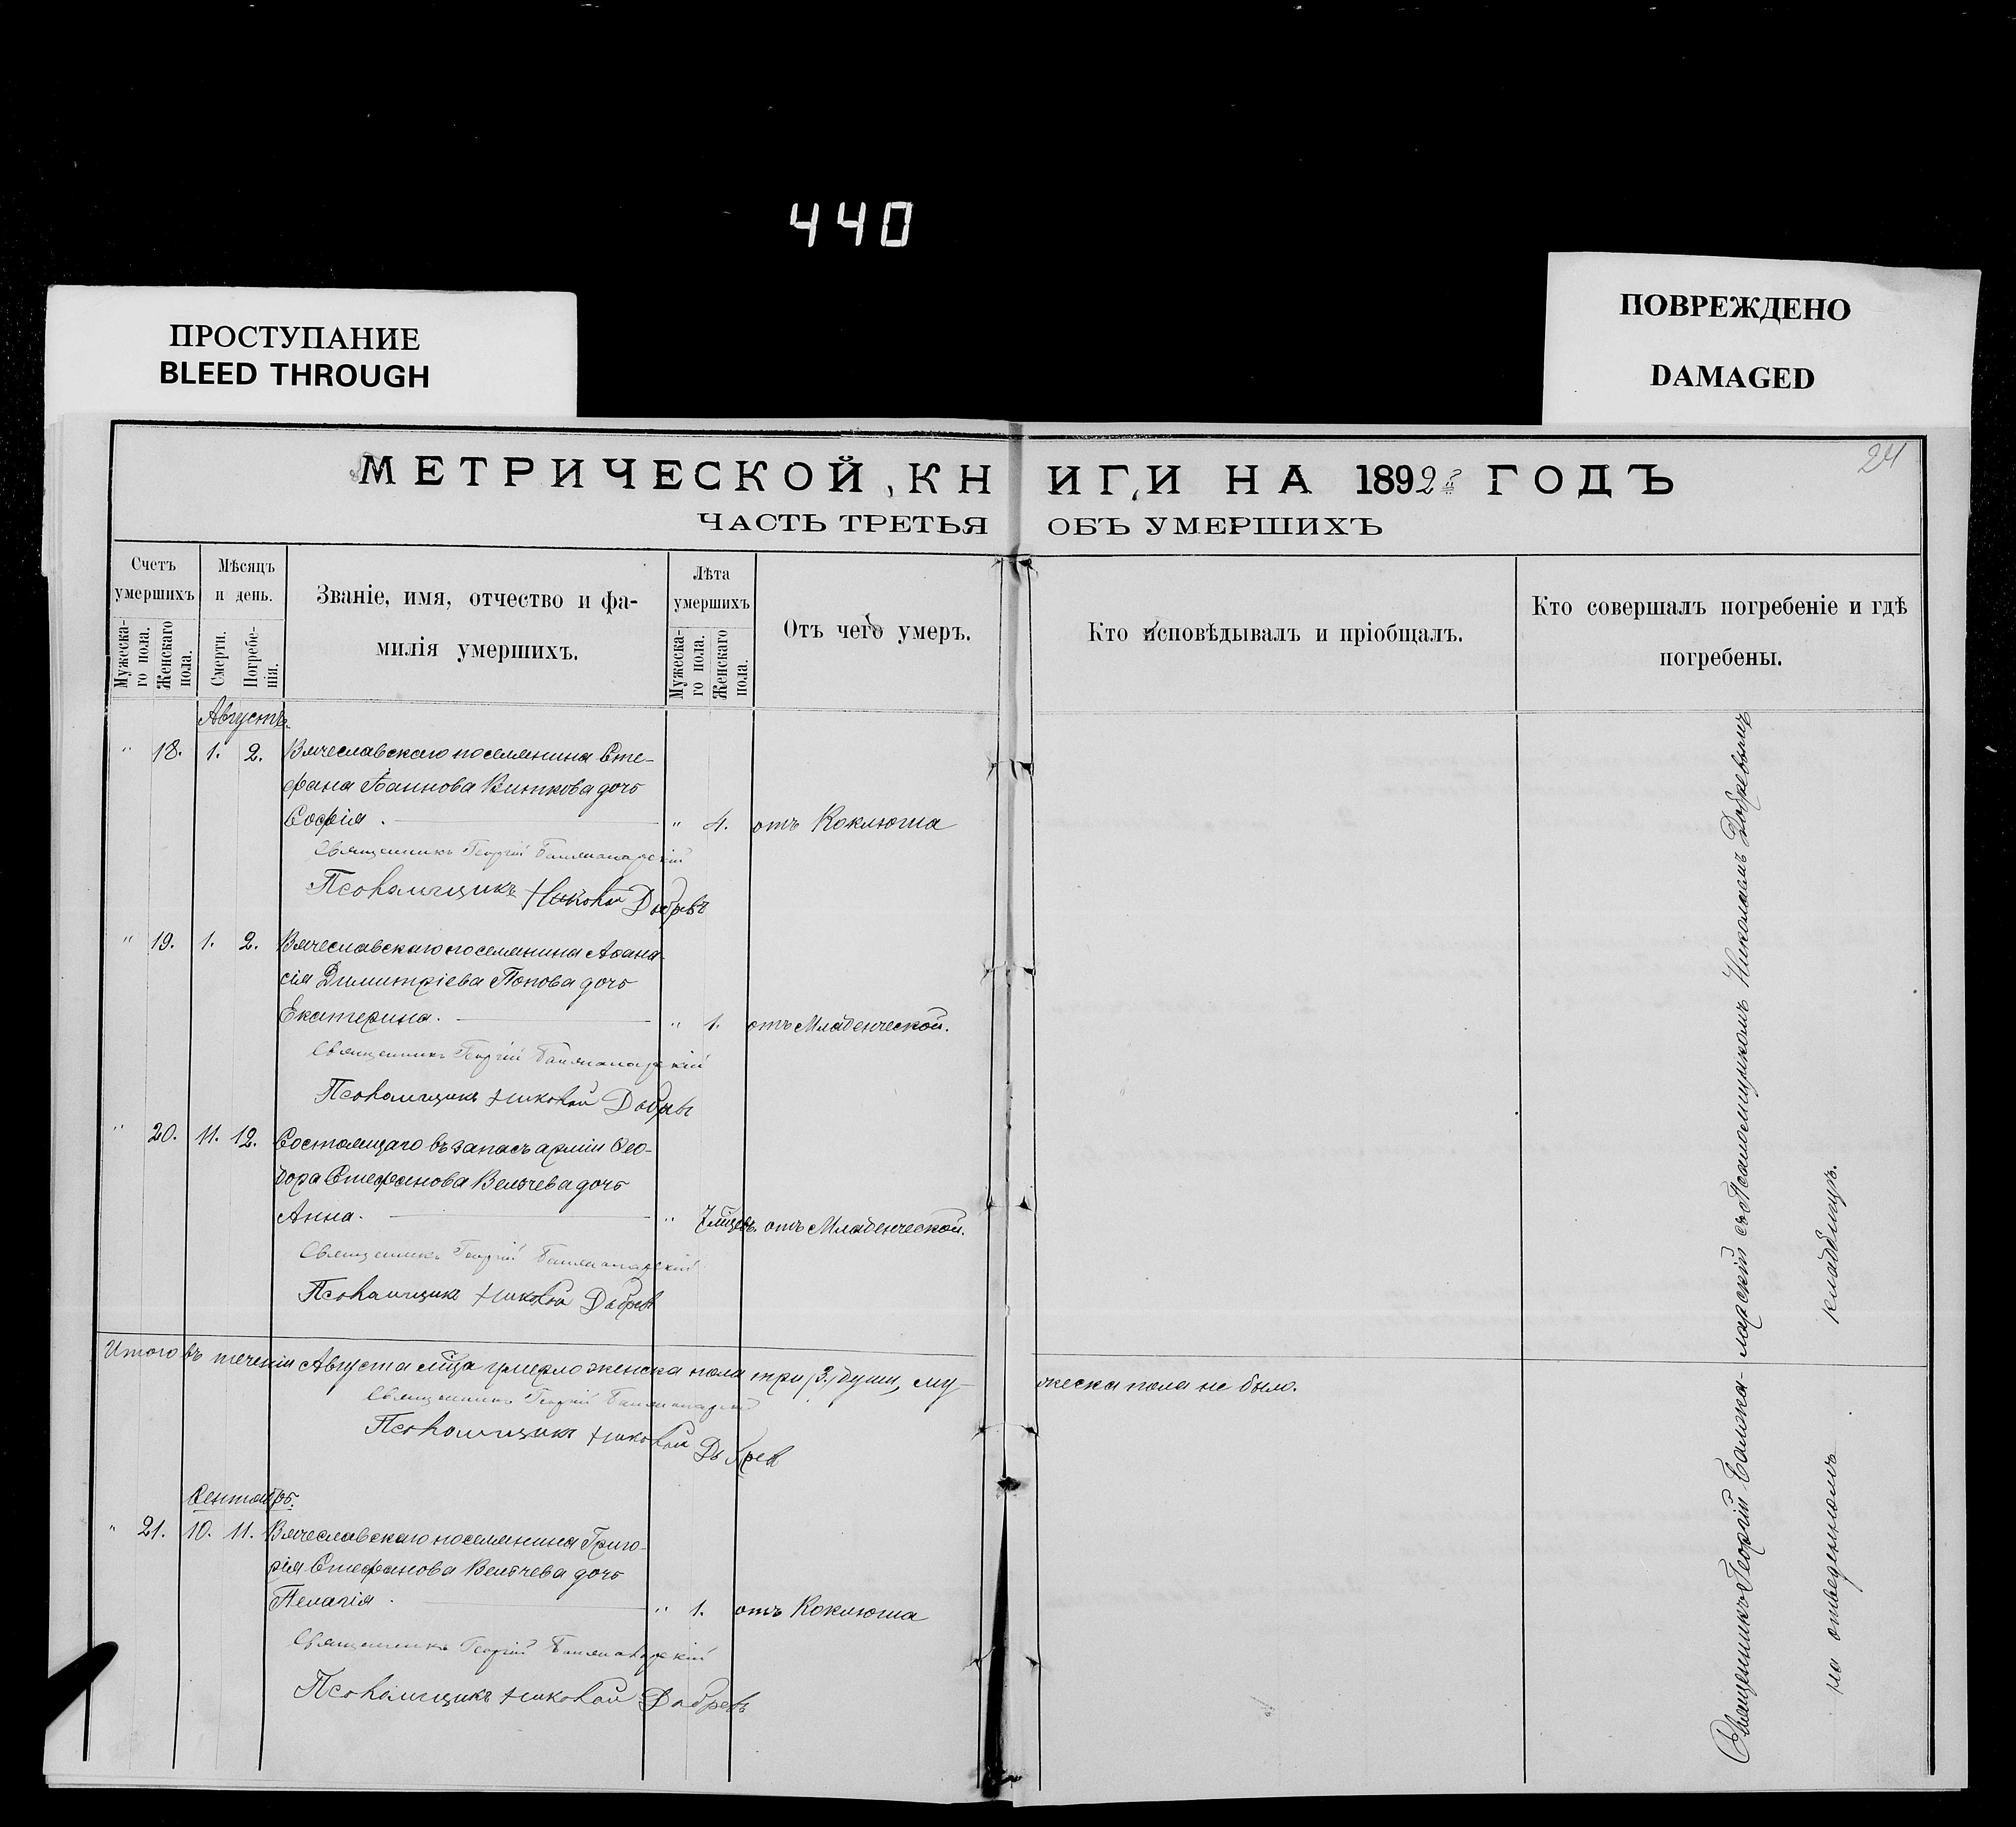 440
ПРОСТУПАНИЕ
BLEED THROUGH
ПОВРЕЖДЕНО
DAMAGED
24
МЕТРИЧЕСКОЙ КНИГИ НА 1892й ГОДЪ
ЧАСТЬ ТРЕТЬЯ ОБЪ УМЕРШИХЪ
Счетъ умершихъ
Мужескаго пола.
Женскаго пола.
Мѣсяцъ и день.
Смерти.
Погребенія.
Званіе, имя, отчество и фамилія умершихъ.
Лѣта умершихъ
Мужескаго пола.
Женскаго пола.
Отъ чего умеръ.
Кто исповѣдывалъ и пріобщалъ.
Кто совершалъ погребеніе и гдѣ погребены.
Августъ.
" 18. 1. 2. Вячеславскаго поселянина Сте-
фана Іоаннова Виткова дочь
Софія. " 4. отъ Коклюша
Священникъ Георгій
Псаломщикъ Николай Добревъ
" 19. 1. 2. Вячеславскаго поселянина Аѳана-
сія Димитріева Попова дочь
Екатерина. " 1. отъ Младенческой.
Священникъ Георгій
Псаломщикъ Николай Добревъ
" 20. 11. 12. Состоящаго въ запасъ арміи Ѳео-
дора Стефанова Вельчева дочь
Анна. " 7 мѣцевъ. отъ Младенческой.
Священникъ Георгій
Псаломщикъ Николай Добревъ
Итого въ теченіи Августа мѣца умерло женска пола три /3./ души, му-
жеска пола не было.
Священникъ Георгій
Псаломщикъ Николай Добрев
Сентябрь.
" 21. 10. 11. Вячеславскаго поселянина Григо-
рія Стефанова Вельчева дочь
Пелагія. " 1. отъ Коклюша
Священникъ Георгій
Псаломщикъ Николай Добревъ
Священникъ Георгій съ Псаломщикомъ Николаемъ Добревымъ
на отведенномъ кладбищѣ.